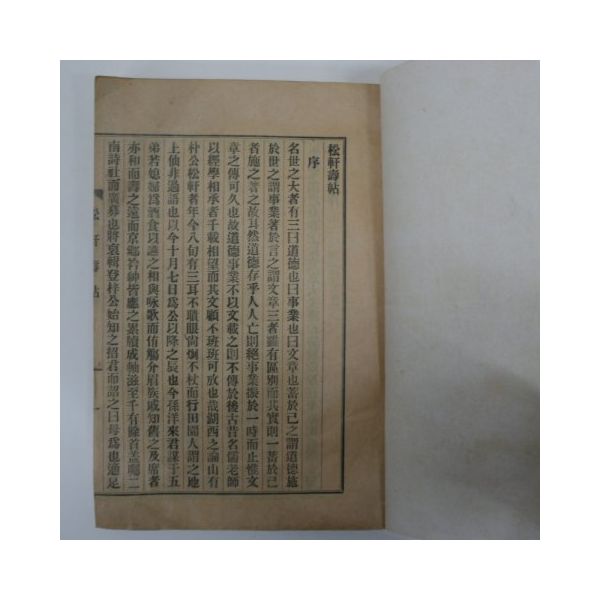 松軒壽帖
序
名世之大者有三曰道德也曰事業也曰文章也蓄於己之謂道德施
於世之謂事業著於言之謂文章三者雖有區別而其實則一蓄於己
者施之著之故耳然道德存乎人人亡則絕事業振於一時而止惟文
章之傳可久也故道德事業不以文載之則不傳於後古昔名儒老師
以經學相承者千載相望而其文顧不班班可放也哉湖西之論山有
朴公松軒者年今八旬有三耳不聵眼尙烱不杖而行田園人謂之地
上仙非過語也以今十月七日爲公以降之辰也今孫洋來君謀于五
弟若媳婦爲酒食以讌之相與咏歌而侑觴分眉族戚知舊之及席者
亦和而壽之遠而京鄕衿紳皆應之累牘成軸滋至千有餘首盖囑二
南詩社而廣募也將裒輯登梓公始知之招君而詔之曰毋爲也適足
松軒壽帖